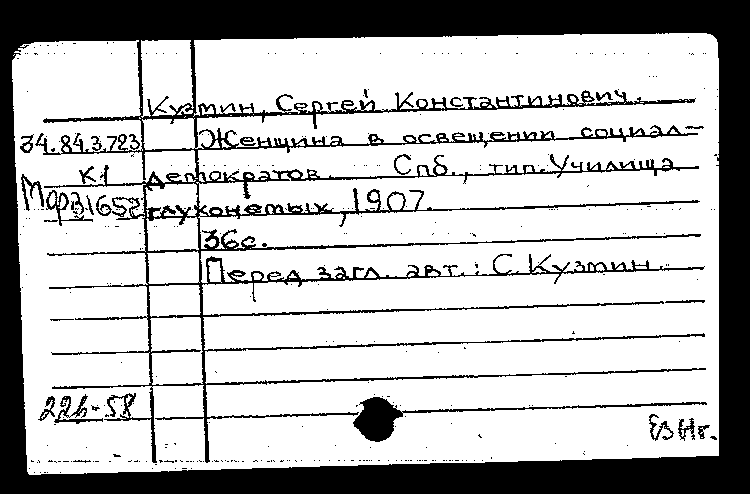 Кузмин, Сергей Константинович.
34.84.3.723 Женщина в освещении социал-
К1 демократов. Спб., тип. Училища
глухонемых, 1907.
36с.
Перед загл. авт.: С. Кузмин.
226-58